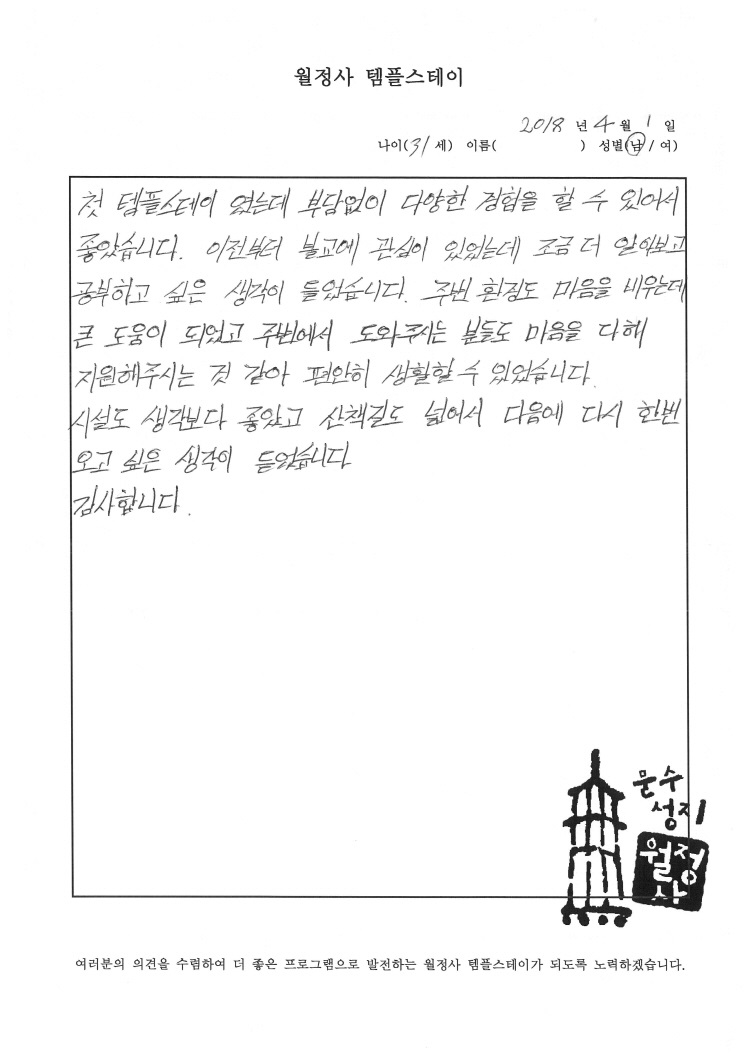 월정사 템플스테이
2018 년 4 월 1 일
나이(31세) 이름( ) 성별(남/여)
첫 템플스테이 였는데 부담없이 다양한 경험을 할 수 있어서
좋았습니다. 이전부터 불교에 관심이 있었는데 조금 더 알아보고
공부하고 싶은 생각이 들었습니다. 주변 환경도 마음을 비우는데
큰 도움이 되었고 주변에서 도와주시는 분들도 마음을 다해
지원해주시는 것 같아 편안히 생활할 수 있었습니다.
시설도 생각보다 좋았고 산책길도 넓어서 다음에 다시 한번
오고 싶은 생각이 들었습니다
감사합니다.
문수
성지
월정
사
여러분의 의견을 수렴하여 더 좋은 프로그램으로 발전하는 월정사 템플스테이가 되도록 노력하겠습니다.